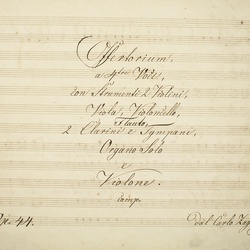 Offertorium,
a 4tro Voci,
con Strumenti 2 Violini,
Viola, Violoncello,
Flauto,
2 Clarini e Tympani,
Organo Solo
e
Violone.
44.
del Carlo